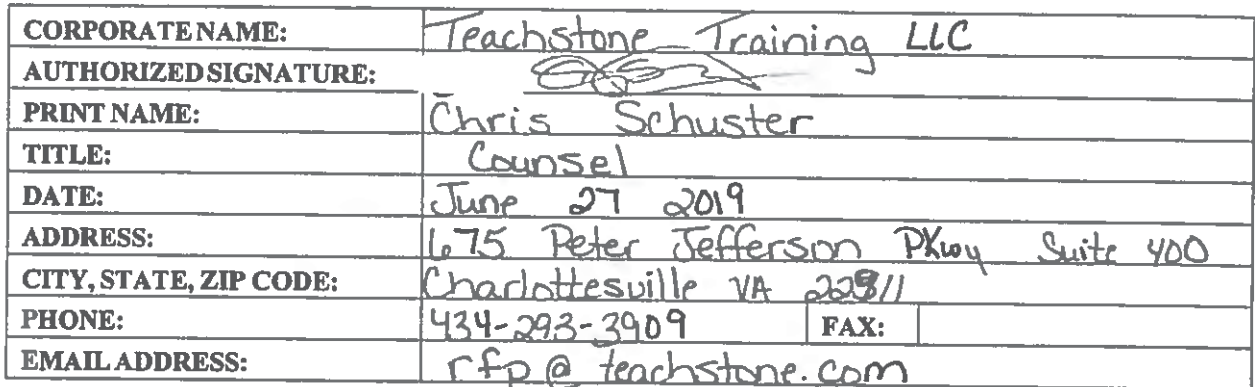 CORPORATE NAME: Teachstone Training LLC
AUTHORIZED SIGNATURE:
PRINT NAME: Chris Schuster
TITLE: Counsel
DATE: June 27 2019
ADDRESS: 675 Peter Jefferson PKwy Suite 400
CITY, STATE, ZIP CODE: Charlottesville VA 22911
PHONE: 434-293-3909 FAX:
EMAIL ADDRESS: rfp@teachstone.com